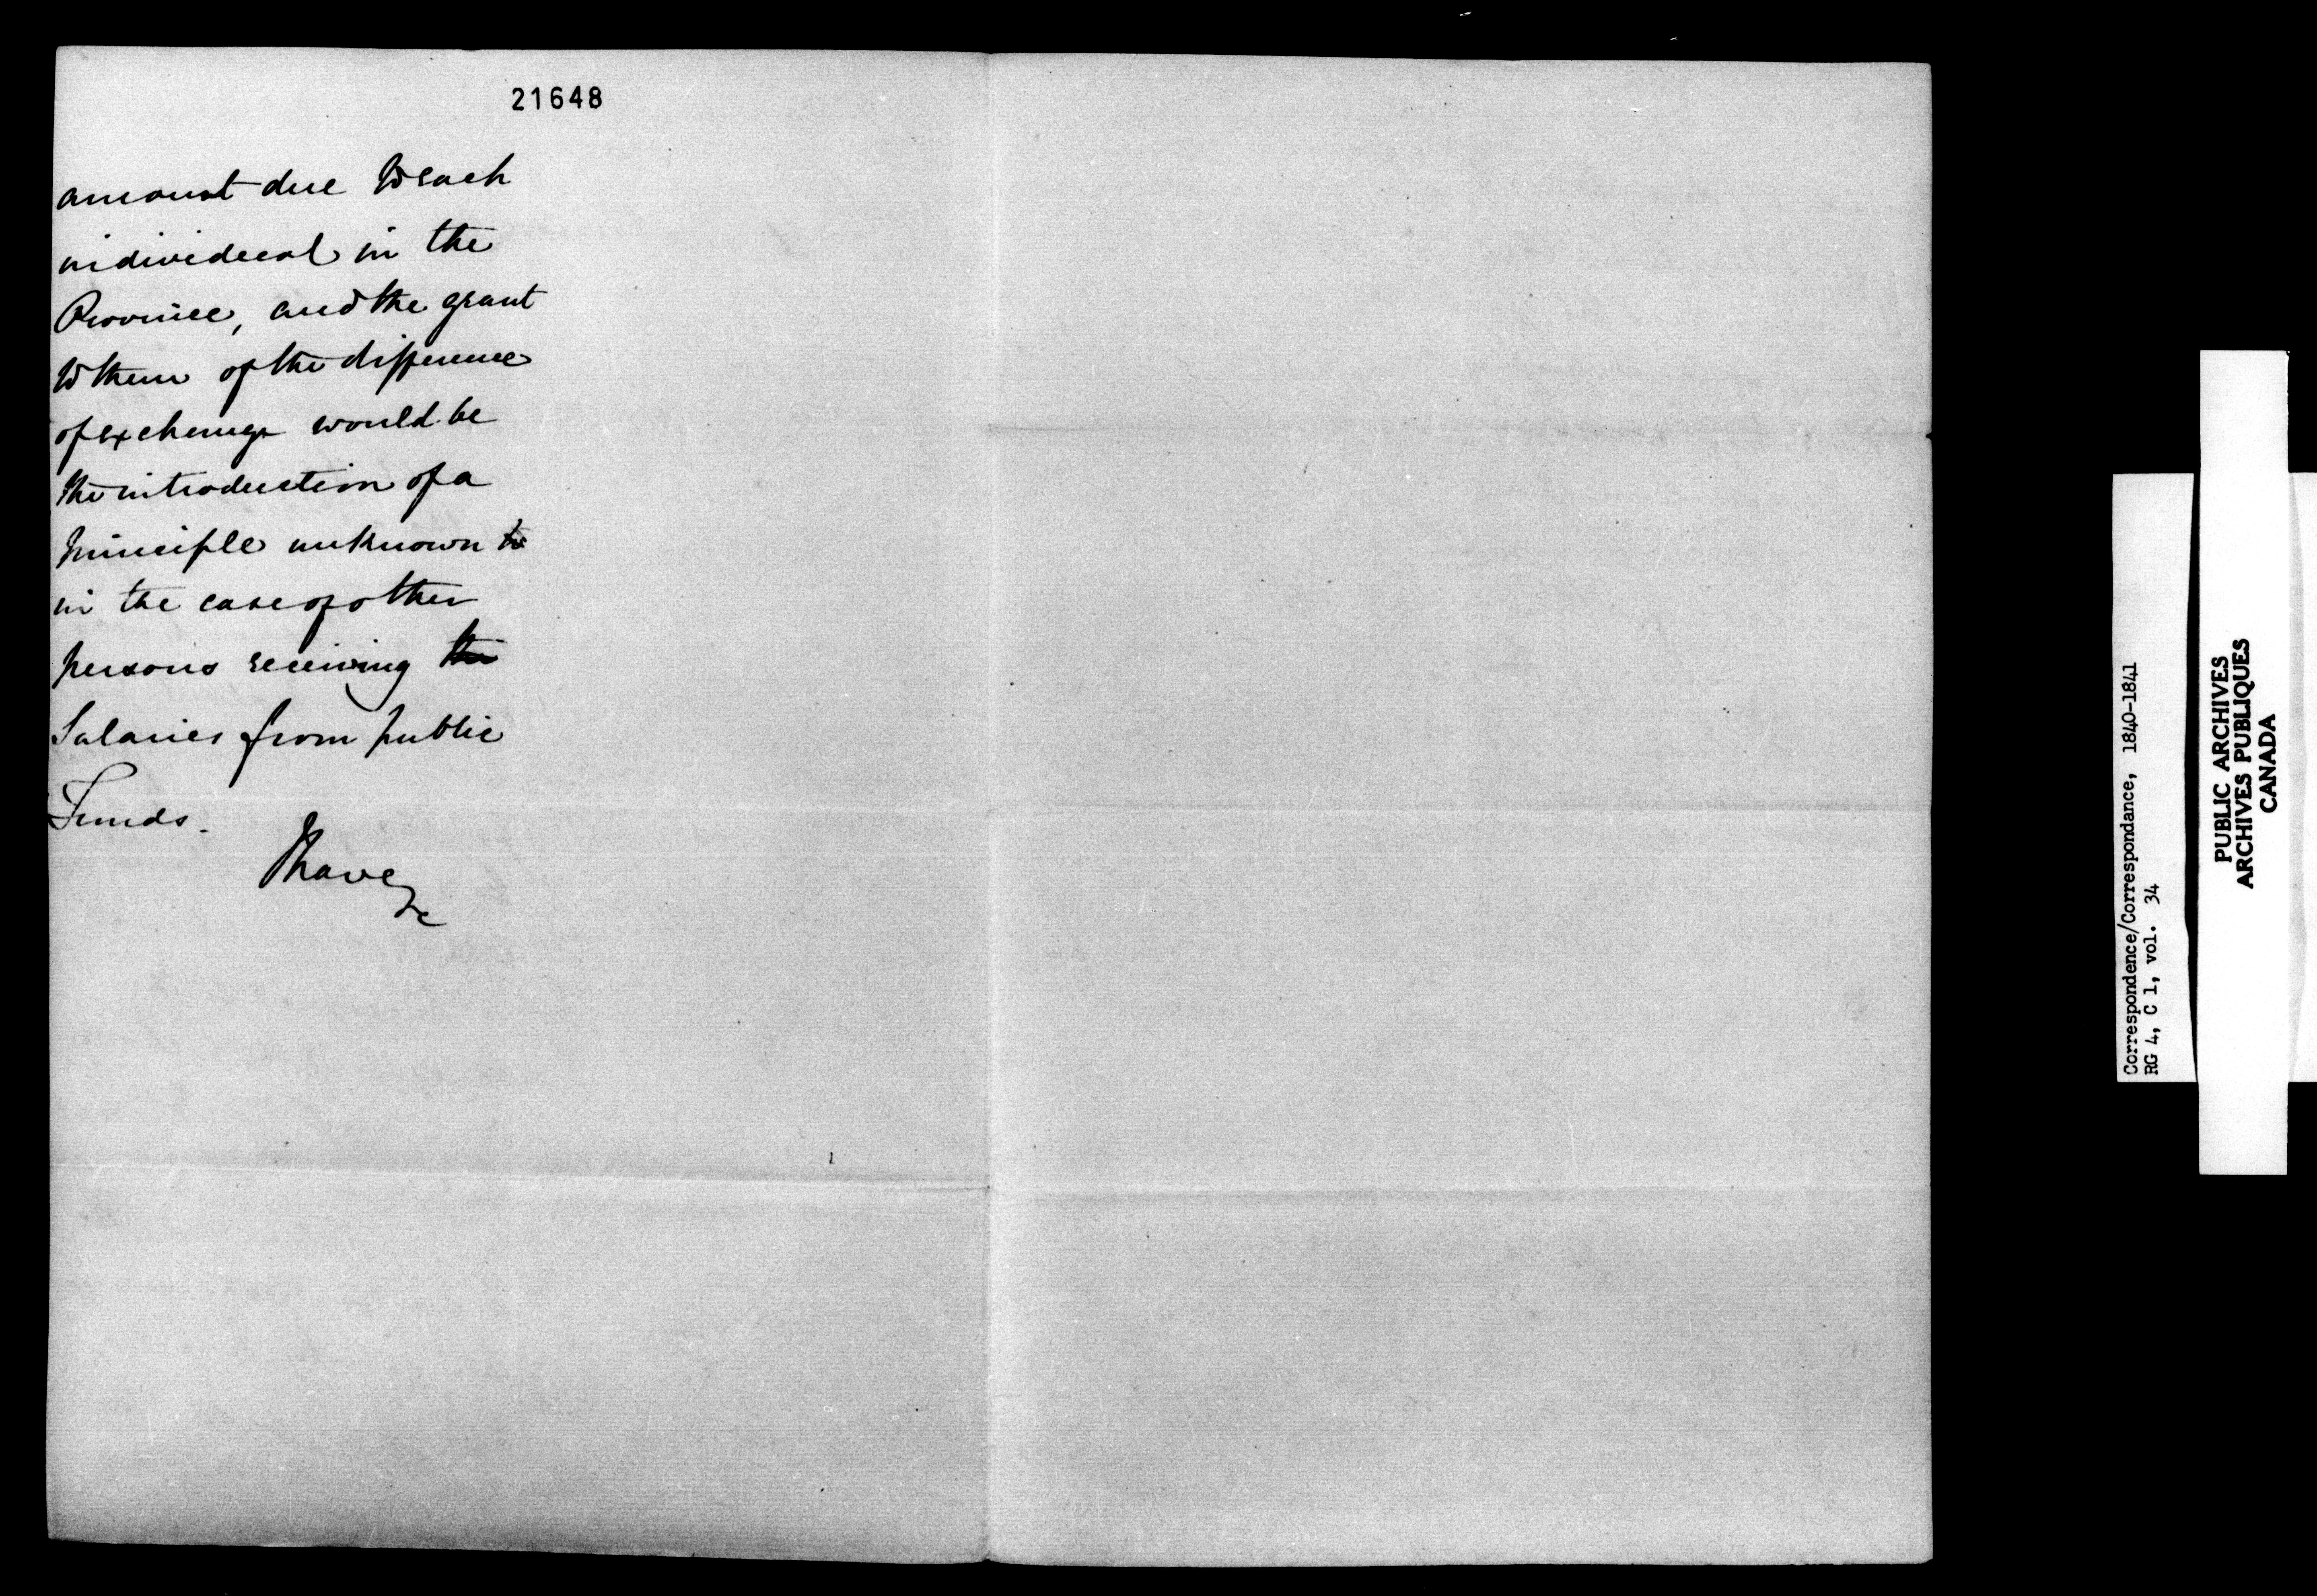 21648
amount due to each
individual in the
Province, and the grant
to them of the difference
of exchange would be
the introduction of a
principle unknown to
in the case of other
persons receiving the
Salaries from public
Funds.
I have
&c
Correspondence/Correspondance, 1840-1841
RG 4, C 1, vol. 34
PUBLIC ARCHIVES
ARCHIVES PUBLIQUES
CANADA